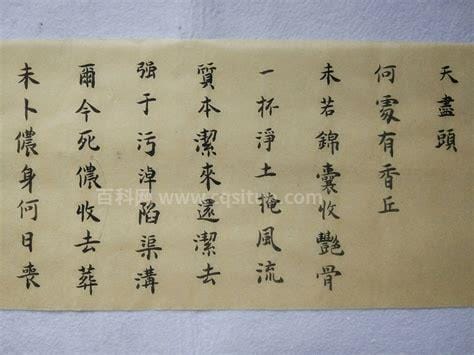 天盡頭
何處有香丘
未若錦囊收艷骨
一杯淨土掩風流
質本潔來還潔去
强于污淖陷渠溝
爾今死儂收去葬
未卜儂身何日喪
百科网